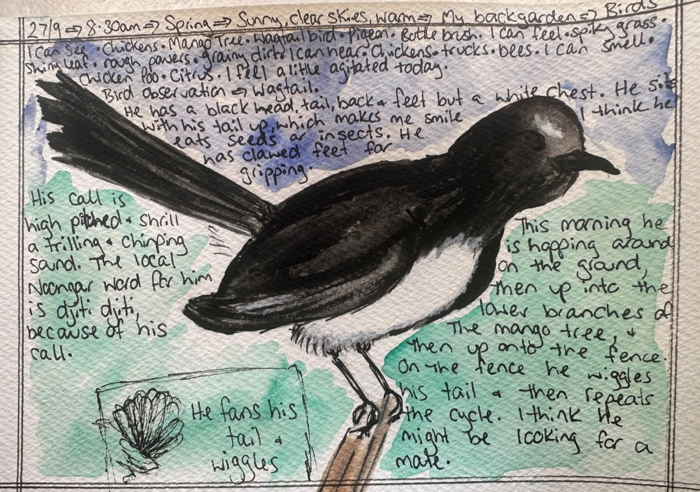 27/9 ⇒ 8:30am ⇒ Spring ⇒ Sunny, clear skies, warm ⇒ My backgarden ⇒ Birds
I can see · Chickens · Mango Tree · Wagtail bird · Pigeon · Bottle brush. I can feel · spiky grass ·
shiny leaf · rough pavers · grainy dirt. I can hear · Chickens · trucks · bees. I can smell ·
chicken poo · Citrus. I feel a little agitated today.
Bird observation ⇒ Wagtail.
He has a black head, tail, back & feet but a white chest. He sits
with his tail up, which makes me smile I think he
eats seeds or insects. He
has clawed feet for
gripping.
His call is
high pitched & shrill
a trilling & chirping
sound. The local
Noongar word for him
is djiti djiti,
because of his
call.
This morning he
is hopping around
on the ground,
then up into the
lower branches of
the mango tree, &
then up onto the fence.
On the fence he wiggles
his tail & then repeats
the cycle. I think he
might be looking for a
mate.
He fans his
tail &
wiggles